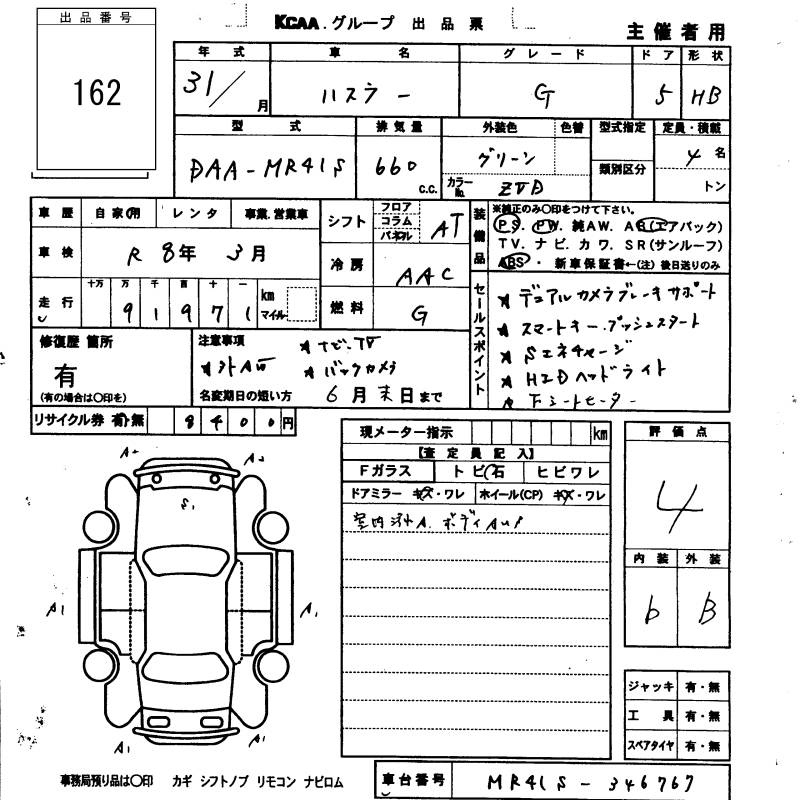 KCAA.グループ 出品票
主催者用
出品番号
162
年式 車名 グレード ドア 形状
31/月 ハスラー G 5 HB
型式 排気量 外装色 色替 型式指定 定員・積載
DAA-MR41S 660 c.c. グリーン 類別区分 4名
カラーNo. ZVD トン
車歴 自家用 レンタ 事業.営業車
車検 R 8年 3月
走行 十万 万 千 百 十 一 km マイル
9 1 9 7 1
シフト フロア コラム パネル AT
冷房 AAC
燃料 G
装備品
※純正のみ○印をつけて下さい。
PS. PW. 純AW. AB(エアバック)
TV. ナビ. カワ. SR(サンルーフ)
ABS・ 新車保証書←(注)後日送りのみ
セールスポイント
★デュアルカメラブレーキサポート
★スマートキー.プッシュスタート
★Sエネチャージ
★HIDヘッドライト
★下シートヒーター
修復歴 箇所
有
(有の場合は○印を)
注意事項
★ナビ.TV
★バックカメラ
名変期日の短い方 6月末日まで
リサイクル券 有・無 8400円
現メーター指示 km
【査定員記入】
Fガラス トビ石 ヒビワレ
ドアミラー キズ・ワレ ホイール(CP) キズ・ワレ
評価点
4
内装 外装
b B
A2 A2
S1
A1 A1
A1 A1
ジャッキ 有・無
工具 有・無
スペアタイヤ 有・無
事務局預り品は○印 カギ シフトノブ リモコン ナビロム
車台番号 MR41S-346767